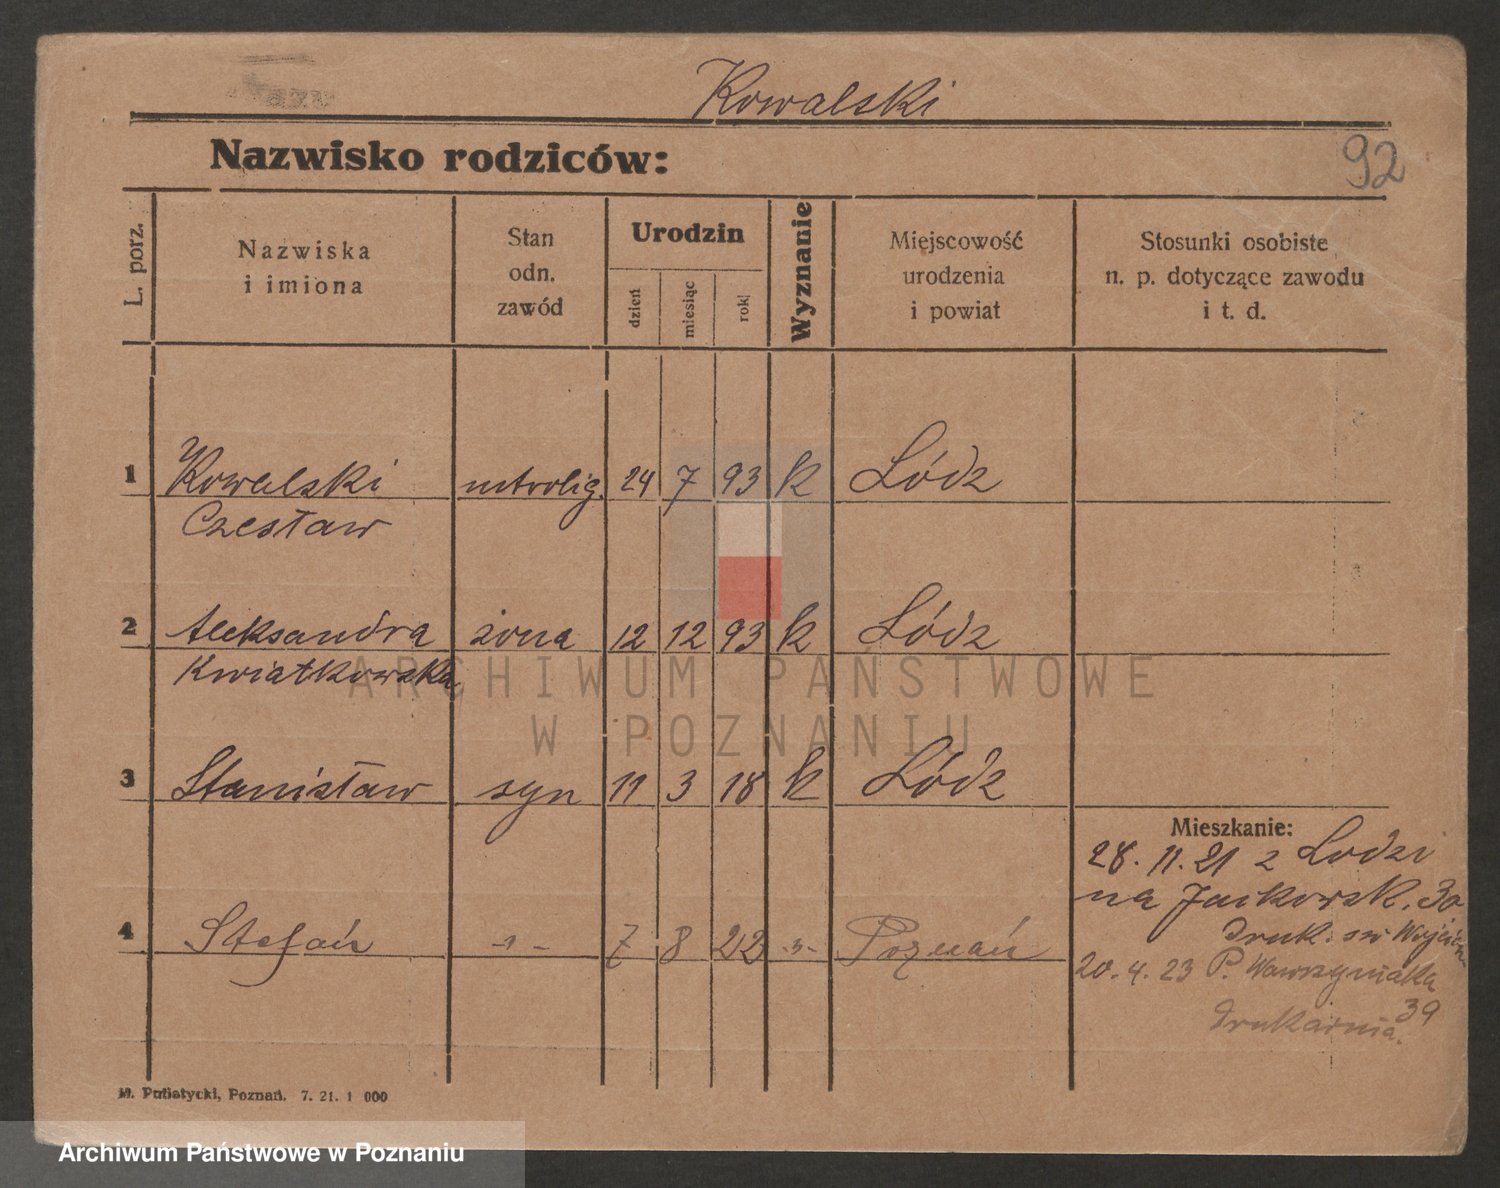 Kowalski
Nazwisko rodziców:
92
L. porz.
Nazwiska
i imiona
Stan
odn.
zawód
Urodzin
dzień
miesiąc
rok
Wyznanie
Miejscowość
urodzenia
i powiat
Stosunki osobiste
n. p. dotyczące zawodu
i t. d.
1 Kowalski introlig. 24 7 93 k Łódz
Czesław
2 Aleksandra żona 12 12 93 k Łódz
Kwiatkowska
3 Stanisław syn 11 3 18 k Łódz
Mieszkanie:
28. 11. 21 z Łodzi
na Jackowsk. 30
Druk. św Wojciech
4 Stefan -"- 7 8 22 -"- Poznań
20. 4. 23 P. Wawrzyniaka
39
Drukarnia.
M. Putiatycki, Poznań. 7. 21. 1 000
ARCHIWUM PAŃSTWOWE
W POZNANIU
Archiwum Państwowe w Poznaniu